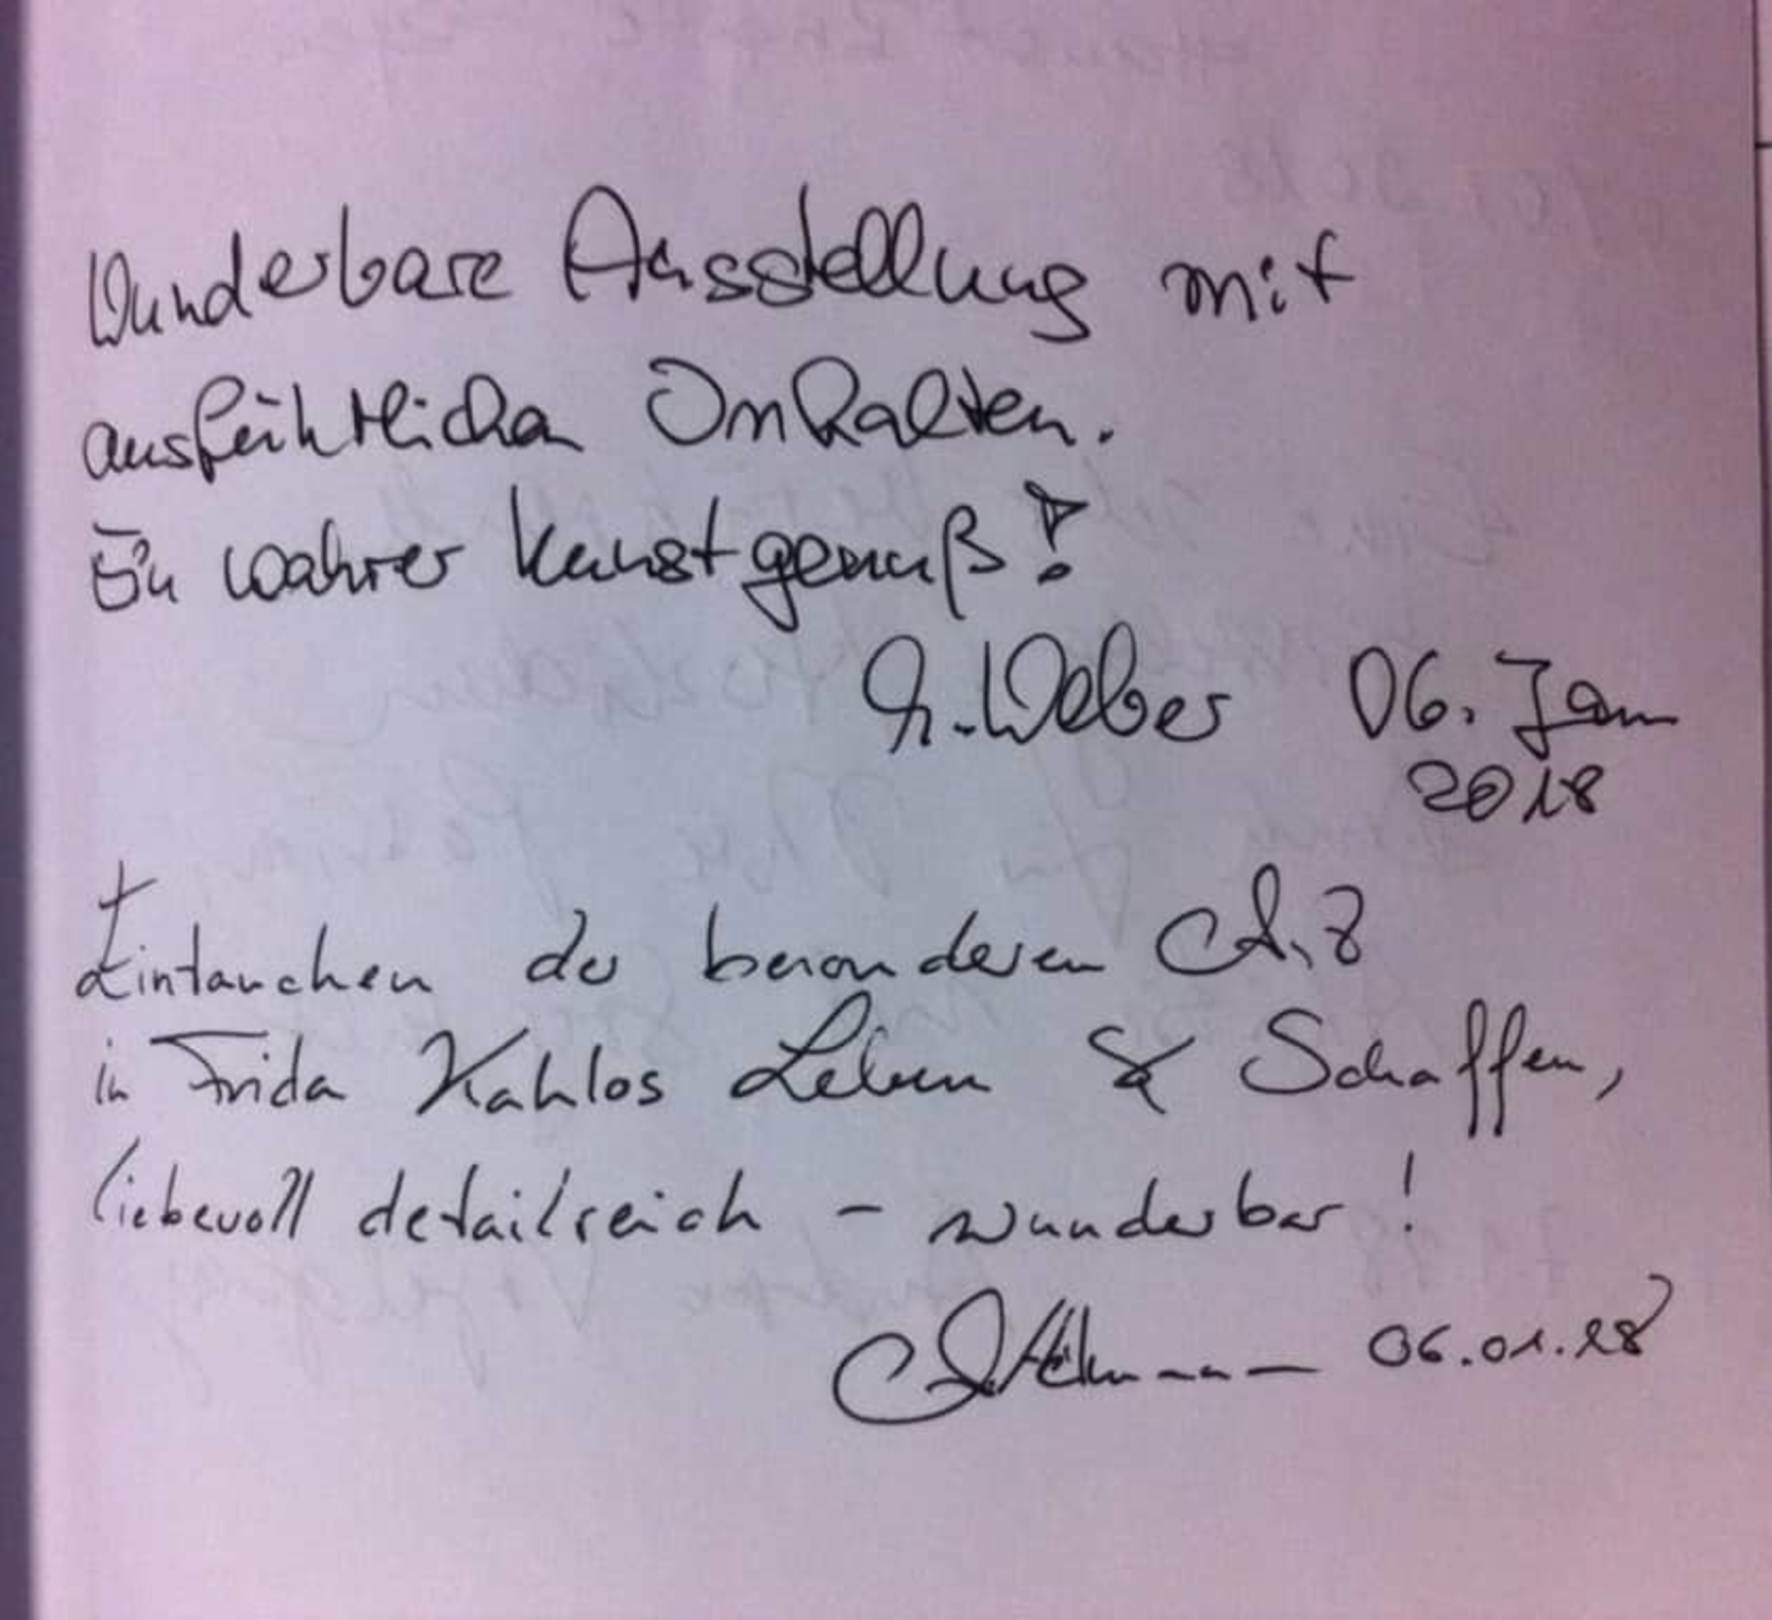 Wunderbare Ausstellung mit
ausführlichen Inhalten.
Ein wahrer Kunstgenuß!
Weber 06. Jan
2018
Eintauchen der besonderen Art
in Frida Kahlos Leben & Schaffen,
liebevoll detailreich - wunderbar!
06.01.18